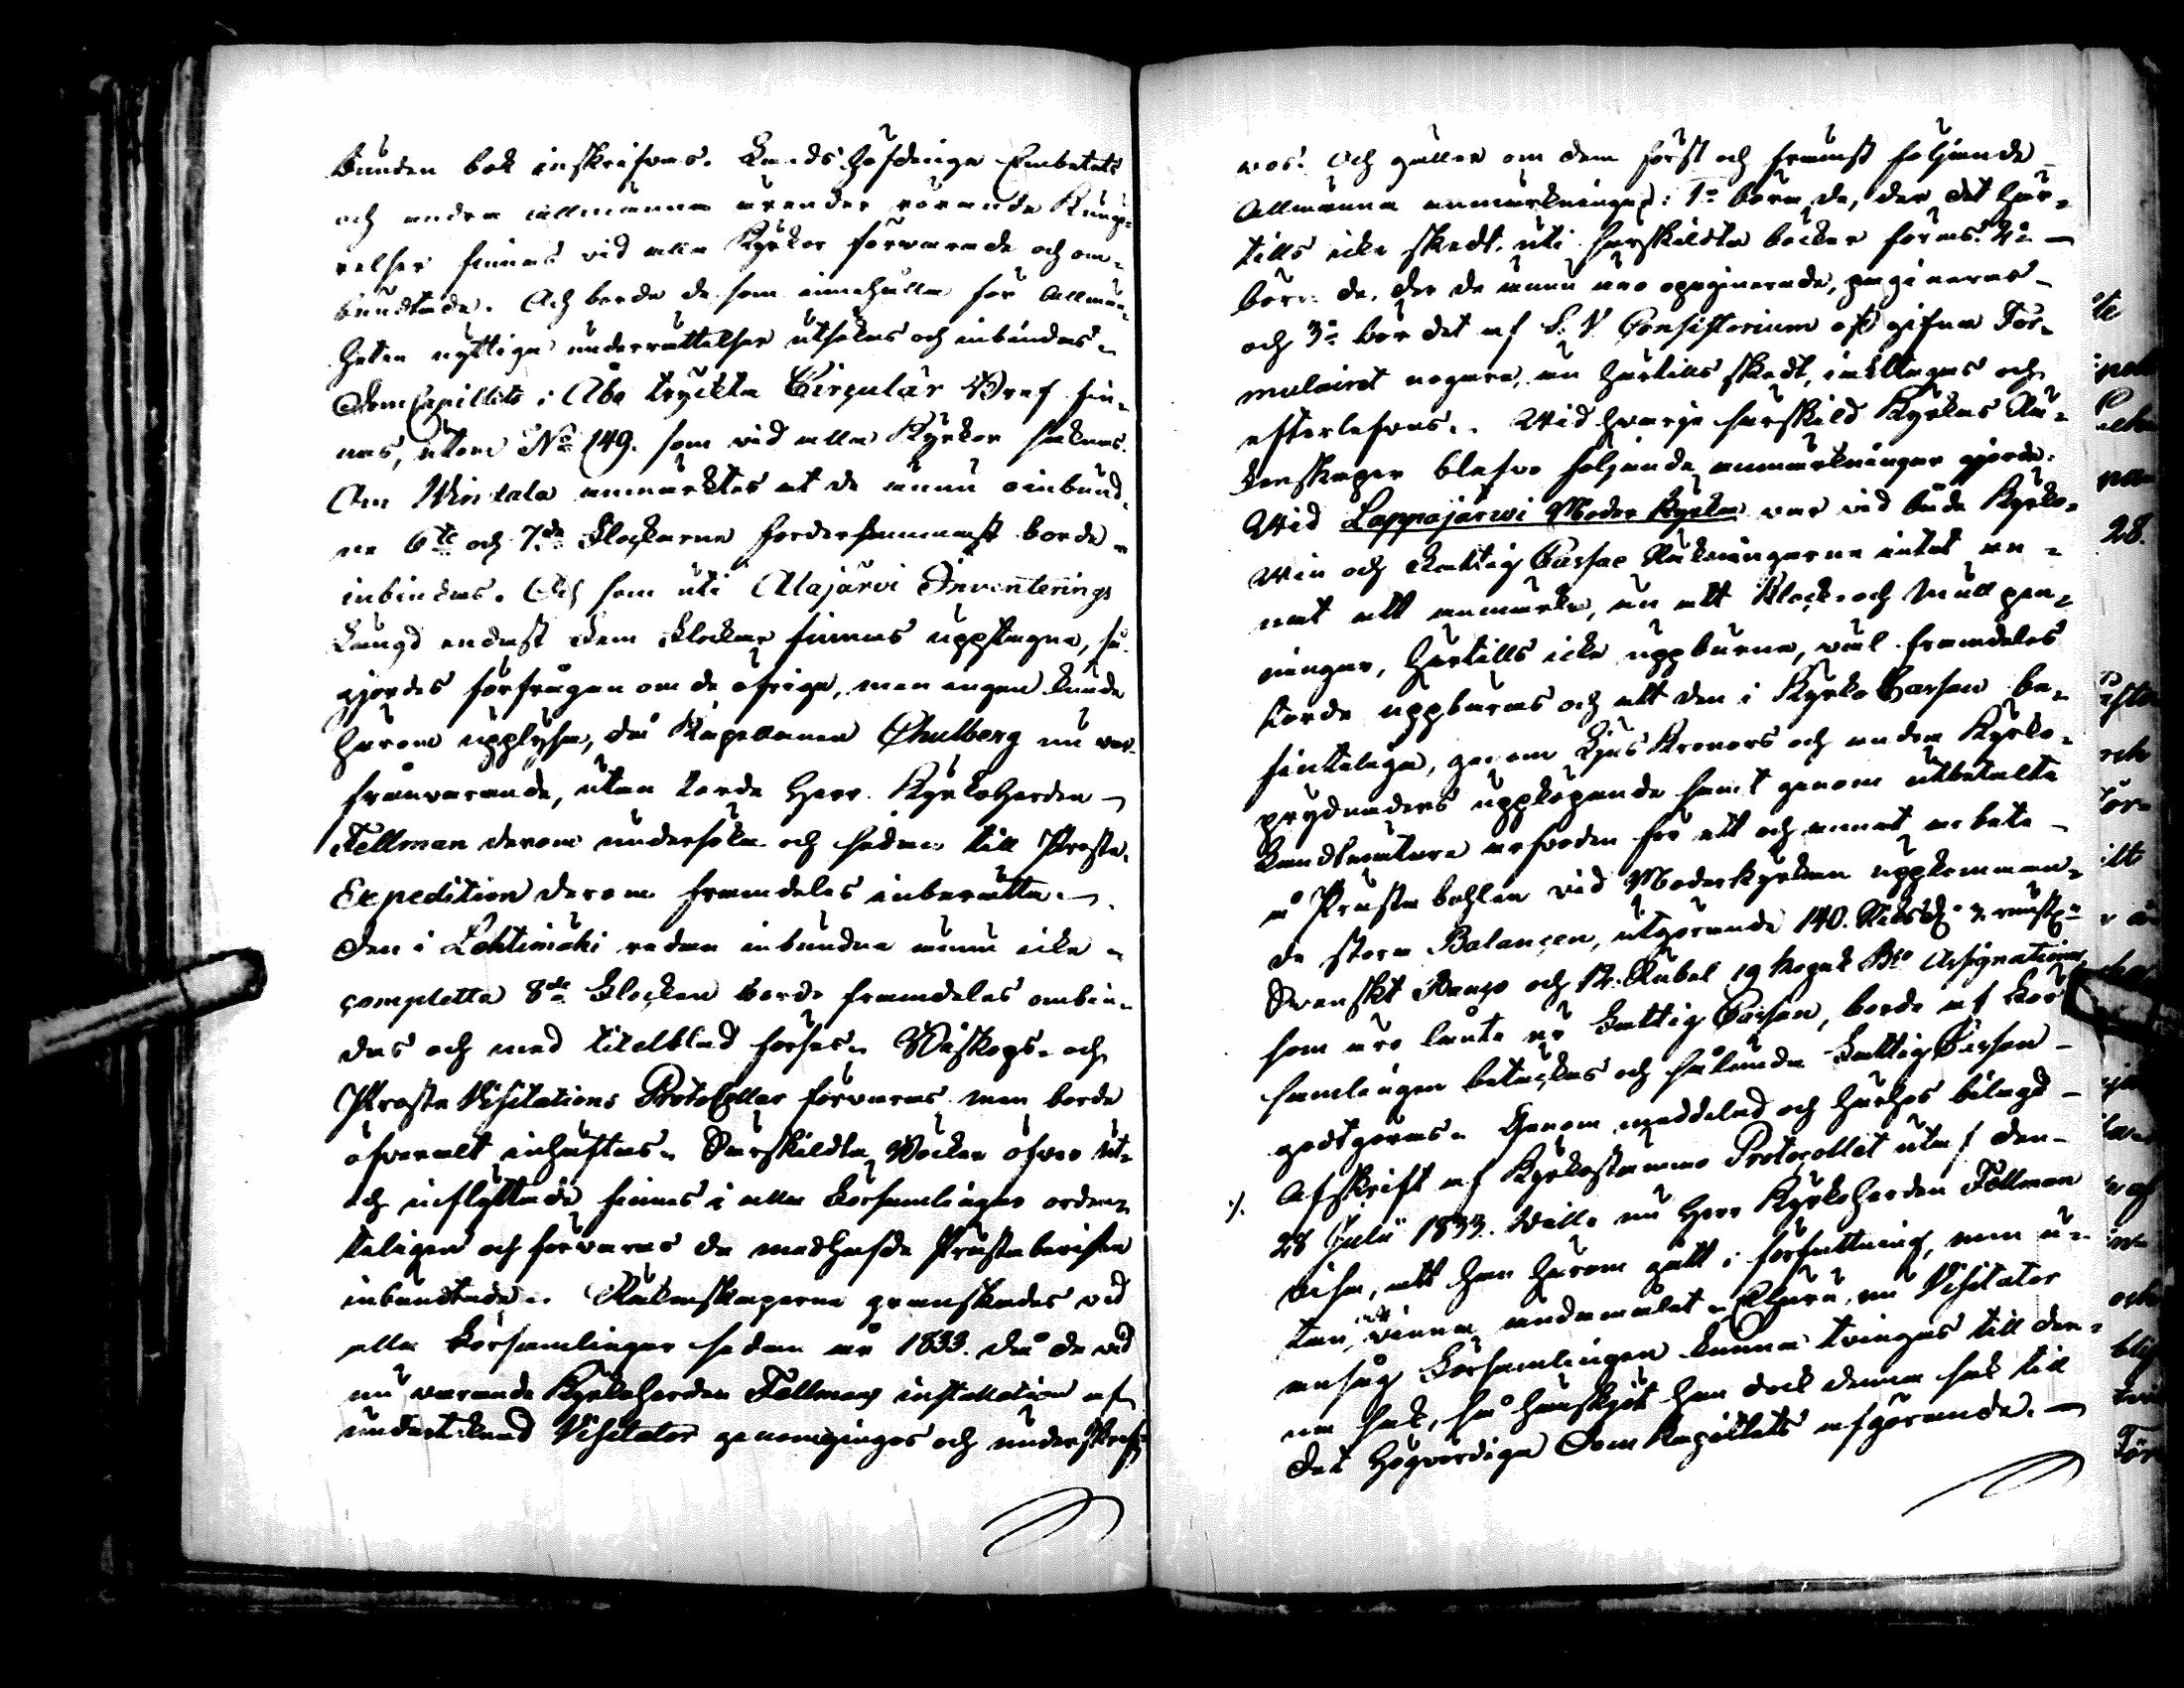 bunden bok inskrifvas. Lands Höfdinge Embetets
och andra allmänna ärender rörande Kungö-
relser finnas vid alla Kyrkor förvarade och om-
buntade. Och borde de som innehålla för Allmän-
heten nyttiga underrättelser utsökas och inbindas.
DomCapitlets i Åbo tryckta Cirqulär Bref fin-
nas, utom No 149. som vid alla Kyrkor saknas.
Om Windala anmärktes at de ännu oinbund-
ne 6te och 7de Flockarne fordersammast borde
inbindas. Och som uti Alajärvi Inventerings
Längd endast dem Flockar finnas upptagne, så
gjordes förfrågan om de öfriga, men ingen kunde
härom upplysa, då Kapellanen Chulberg nu var
frånvarande, utan borde Herr Kyrkoherden
Fellman derom undersöka och sedan till Prosts
Expedition derom framdeles inberätta.
Den i Lehtimäki redan inbundna ännu icke
completta 8de Flocken borde framdeles ombin-
das och med titelblad förses. Biskops- och
Prosta Visitations Protocoller förvaras men borde
öfveralt inhäftas. Särskildta Böcker öfver ut-
och inflyttade finnas i alla Församlingar ordent-
teligen och förvaras de medhafde Prästabevisen
inbuntade. Räkenskaperna granskades vid
alla Församlingar sedan år 1833. då de vid
nu varande Kyrkoherden Fellmans installation af
undertecknad Visitator genomginges och underskref-
vos. Och gäller om dem först och främst följande
Allmänna anmärkningar: 1o böra de, der det här-
tills icke skedt, uti särskildta böcker föras. 2o
böra de, der de ännu äro opaginerade, pagineras
och 3o bör det af S. V. Consistorium oft gifna For-
mulairet nogare, än härtills skedt, iakttagas och
efterlefvas. Wid hvarje särskild Kyrkas Rä-
kenskaper blefvo följande anmärkningar gjorde.
Wid Lappajärwi Moder Kyrka var vid både Kyrko-
Win och Fattig Cassae Räkningarne intet an-
nat att anmärka, än att Klock- och Mull pen-
ningar, härtills icke uppburna, väl framdeles
torde uppbäras och att den i Kyrko Cassan be-
fintelige, genom Ljus Kronors och andra Kyrko-
prydnaders uppköpande samt genom utbetalte
Landtmätare arfvoden för ett och annat arbete
å Prästa bohlen vid Moderkyrkan uppkomman-
de stora Balancen, utgörande 140. Riksd.
Svenskt Banco och 12. Rubel 19 kopek Bco Assignationer
som äro lånte ur Fattig Cassan, borde af För-
samlingen betäckas och sålunda Fattig Cassan
godtgöras. Genom meddelad och härhos bilagd
Afskrift af Kyrkostämmo Protocollet utaf den
28 Julii 1833. ville nu Herr Kyrkoherden Fellman
visa, att han härom gått i författning, men u-
tan att vinna ändamålet. Ehuru nu Visitator
ansåg Församlingen kunna tvingas till den-
na sak, så hänskjöt han dock denna sak till
Det Högvördiga Dom Kapitlets afgörande.
28.